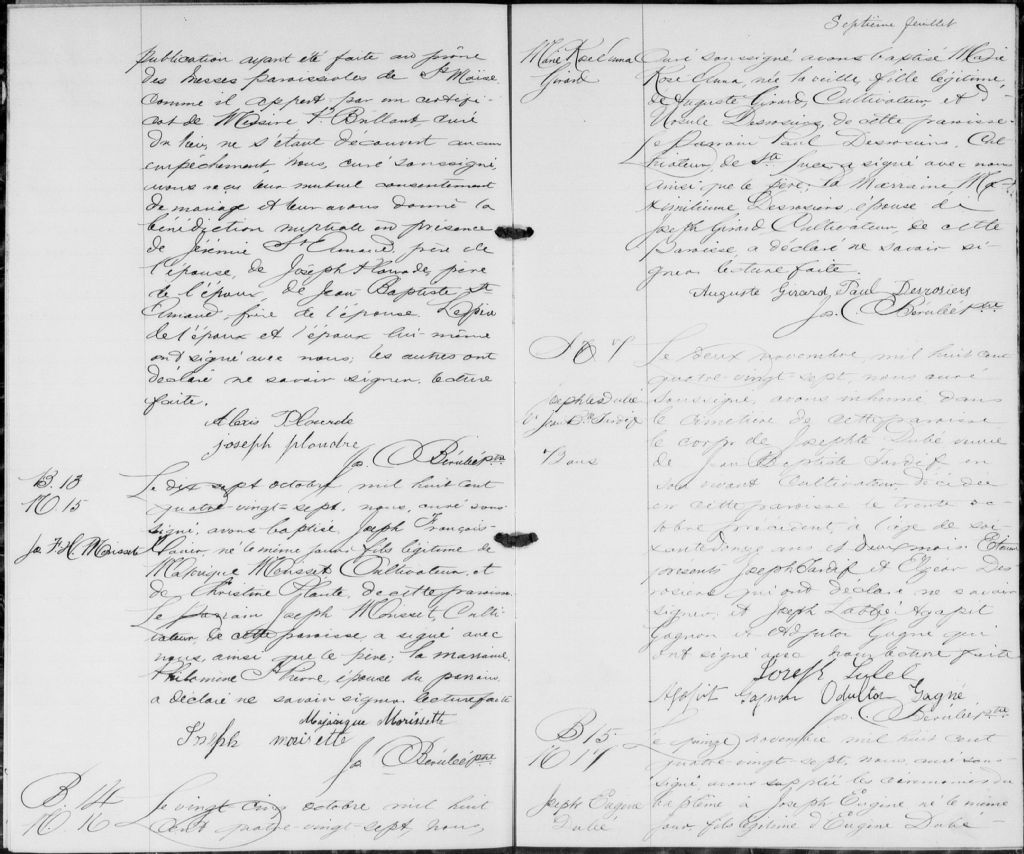 publication ayant été faite au prône
des messes paroissiales de St Moïse
comme il appert par un certifi-
cat de Messire Brillant, curé
du lieu, ne s'étant découvert aucun
empêchement, Nous, curé soussigné,
avons reçu leur mutuel consentement
de mariage et leur avons donné la
bénédiction nuptiale en présence
de Jérémie St Amand père de
l'épouse, de Joseph Plourde, père
de l'époux de Jean Baptiste St
Amand, frère de l'épouse. Le père
de l'époux et l'époux lui-même
ont signé avec nous; les autres ont
déclaré ne savoir signer. Lecture
faite.
Alexis Plourde
joseph ploudre
Jos. C. Bérubé ptre
B. 13
N. 15
Jos F. H. Morissette
Le dix sept octobre mil huit cent
quatre-vingt-sept, nous, curé sous-
signé, avons baptisé Joseph François-
né le même jour, fils légitime de
Majorique Morisset Cultivateur, et
de Christine Plante, de cette paroisse
Le parrain Joseph Morisset, Culti-
vateur de cette paroisse, a signé avec
nous, ainsi que le père; la marraine,
Philomène St Pierre, épouse du parrain,
a déclaré ne savoir signer. Lecture faite
Majorique Morissette
Joseph moirette
Jos C Bérubé ptre
B. 14
N. 16
Le vingt cinq octobre mil huit
cent quatre-vingt-sept, nous,
Septième feuillet
Marie Rose Anna
Girard
curé soussigné avons baptisé Marie
Rose Anna, née la veille, fille légitime
de Auguste Girard, Cultivateur, et d'
Ursule Desrosiers, de cette paroisse.
Le Parrain Paul Desrosiers, Cul-
tivateur, de Ste Luce, a signé avec nous
ainsi que le père; la Marraine Ma-
ximilienne Desrosiers, épouse de
Joseph Girard Cultivateur, de cette
Paroisse, a déclaré ne savoir si-
gner. Lecture faite.
Auguste Girard, Paul Desrosiers
Jos. C Bérubé ptre
S 7
Josephte Dubé
Ve Jean Bte Tardif
72 ans
Le deux novembre, mil huit cent
quatre-vingt-sept, nous curé
soussigné, avons inhumé dans
le cimetière de cette paroisse
le corps de Josephte Dubé veuve
de Jean Baptiste Tardif, en
son vivant Cultivateur, décédée
en cette paroisse le trente oc-
tobre précédent, à l'âge de soi-
xante douze ans et deux mois. Etaient
présents Joseph Tardif et Elzear Des-
rosiers qui ont déclaré ne savoir
signer, et Joseph Agapit
Gagnon et Adjutor Gagné qui
ont signé avec nous. Lecture faite
Joseph
Agapit Gagnon Odultor Gagné
Jos. C Bérubé ptre
B 15
N 17
Joseph Eugène
Dubé
Le quinze novembre mil huit cent
quatre-vingt-sept, nous, curé sous-
signé avons suppléé les cérémonies du
baptême à Joseph Eugène né le même
jour, fils légitime d'Eugène Dubé